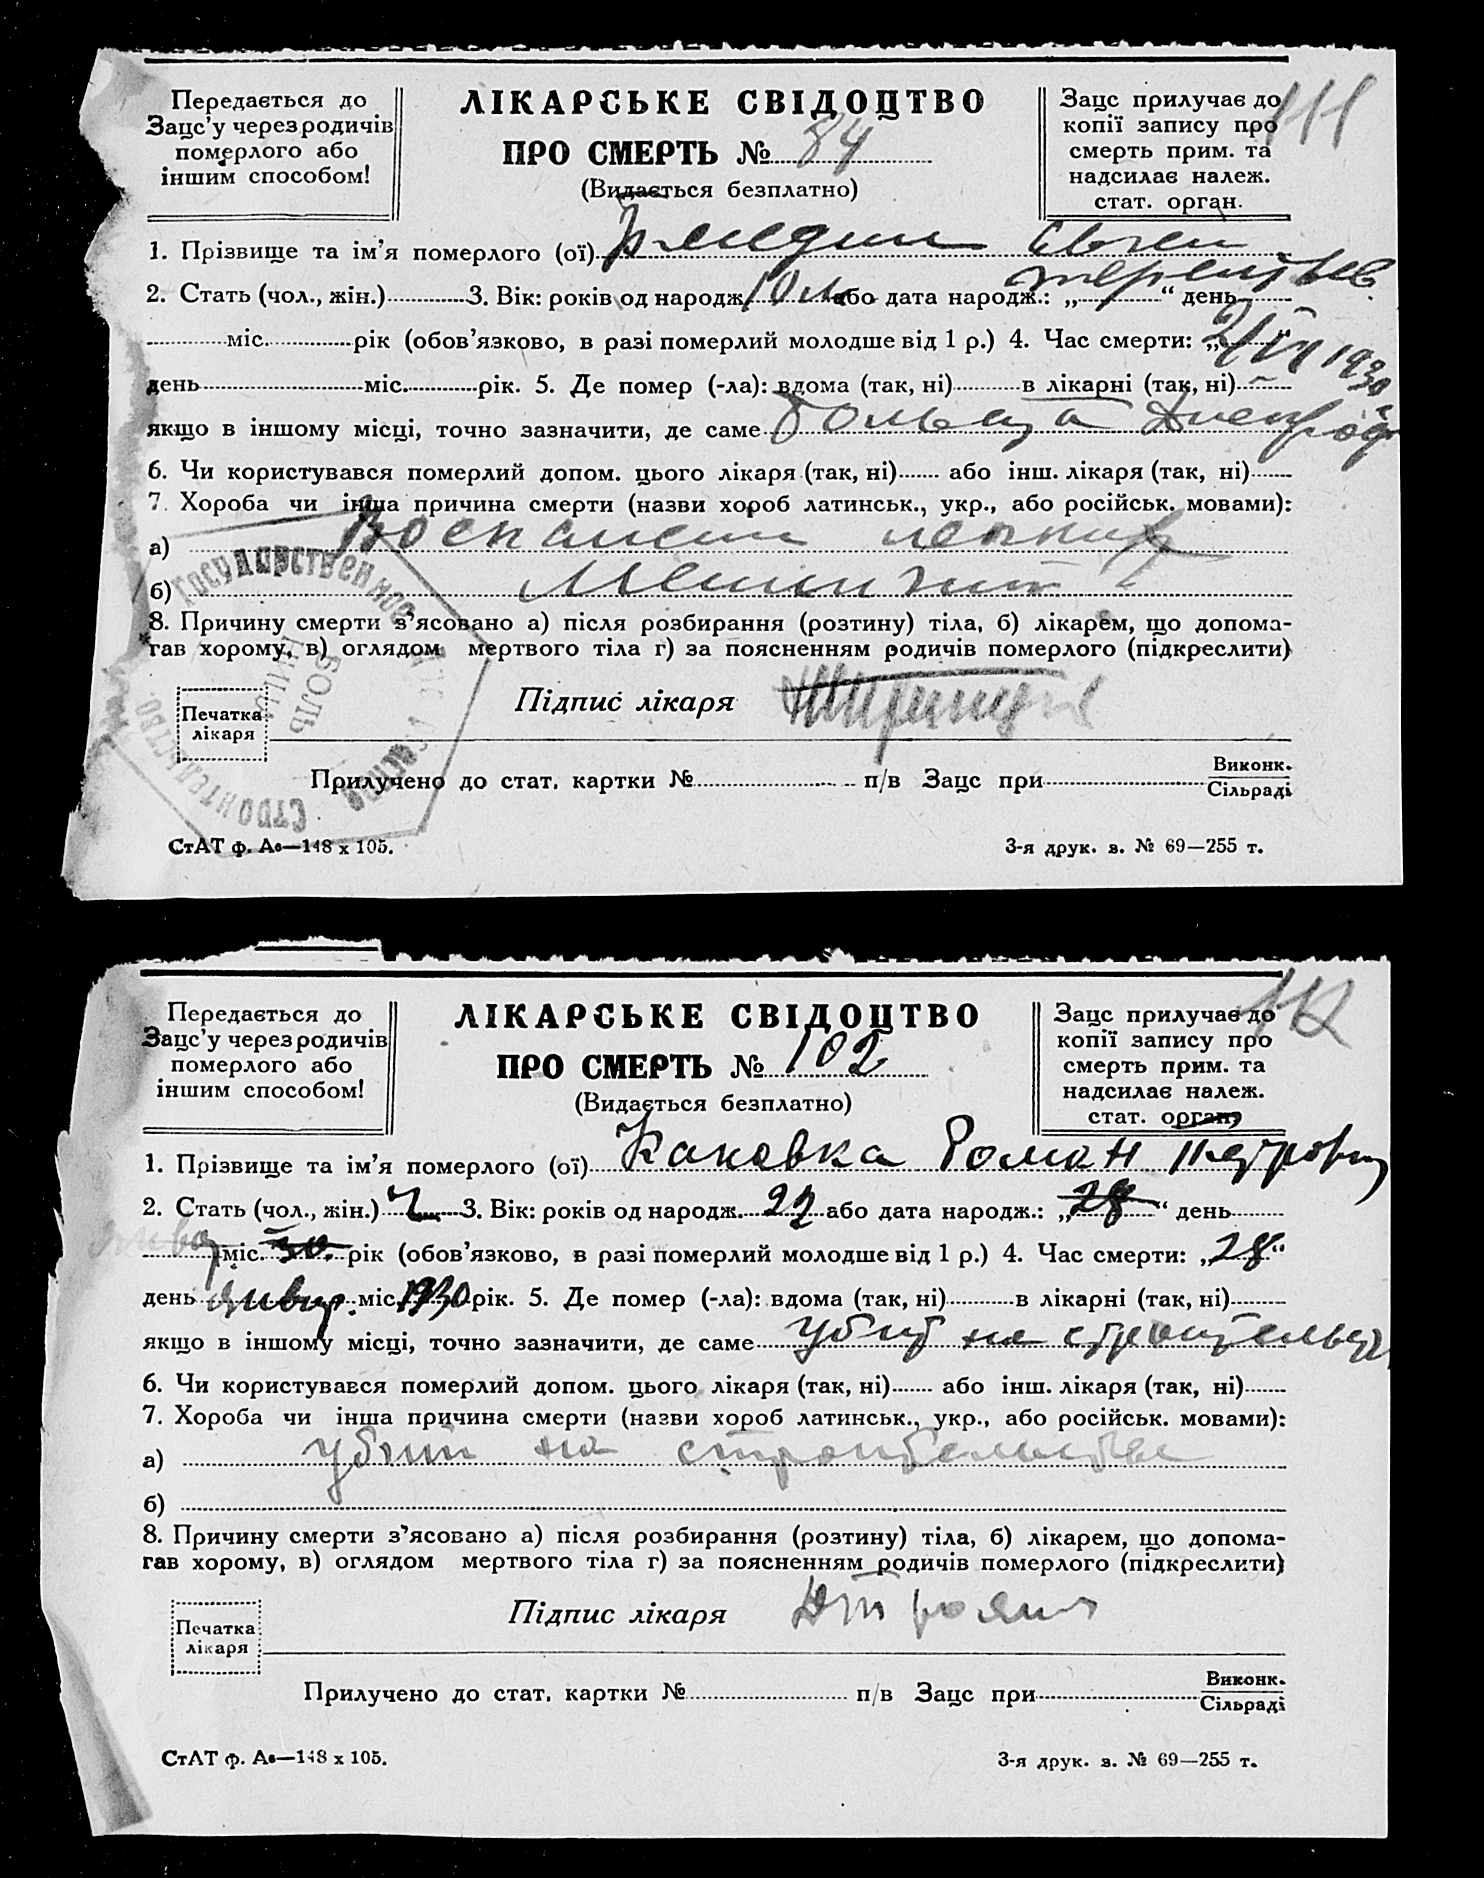 Передається до
Зацс'у через родичів
померлого або
іншим способом!
ЛІКАРСЬКЕ СВІДОЦТВО
ПРО СМЕРТЬ № 84
(Видається безплатно)
Зацс прилучає до
копії запису про
смерть прим. та
надсилає належ.
стат. орган.
111
1. Прізвище та ім'я померлого (ої)
2. Стать (чол., жін.) 3. Вік: років од народж. 10 або дата народж.: „ “ день
міс. рік (обов'язково, в разі померлий молодше від 1 р.) 4. Час смерти: „2/VII 1930
день міс. рік. 5. Де помер (-ла): вдома (так, ні) в лікарні (так, ні)
якщо в іншому місці, точно зазначити, де саме
6. Чи користувався померлий допом. цього лікаря (так, ні) або інш. лікаря (так, ні)
7. Хороба чи інша причина смерти (назви хороб латинськ., укр., або російськ. мовами):
а) Воспаление легких
б) Менингит
8. Причину смерти з'ясовано а) після розбирання (розтину) тіла, б) лікарем, що допома-
гав хорому, в) оглядом мертвого тіла г) за поясненням родичів померлого (підкреслити)
Підпис лікаря
Печатка
лікаря
Государственное
строительство
Больница
Прилучено до стат. картки № п/в Зацс при Виконк.
Сільраді
СтАТ ф. А6—148 х 105.
3-я друк. з. № 69—255 т.
Передається до
Зацс'у через родичів
померлого або
іншим способом!
ЛІКАРСЬКЕ СВІДОЦТВО
ПРО СМЕРТЬ № 102
(Видається безплатно)
Зацс прилучає до
копії запису про
смерть прим. та
надсилає належ.
стат. орган.
112
1. Прізвище та ім'я померлого (ої) Каковка Роман Петрович
2. Стать (чол., жін.) ч 3. Вік: років од народж. 22 або дата народж.: „28“ день
міс. 30 рік (обов'язково, в разі померлий молодше від 1 р.) 4. Час смерти: „28“
день январ. міс. 1930 рік. 5. Де помер (-ла): вдома (так, ні) в лікарні (так, ні)
якщо в іншому місці, точно зазначити, де саме убит на строительств
6. Чи користувався померлий допом. цього лікаря (так, ні) або інш. лікаря (так, ні)
7. Хороба чи інша причина смерти (назви хороб латинськ., укр., або російськ. мовами):
а) убит на строительстве
б)
8. Причину смерти з'ясовано а) після розбирання (розтину) тіла, б) лікарем, що допома-
гав хорому, в) оглядом мертвого тіла г) за поясненням родичів померлого (підкреслити)
Підпис лікаря
Печатка
лікаря
Прилучено до стат. картки № п/в Зацс при Виконк.
Сільраді
СтАТ ф. А6—148 х 105.
3-я друк. з. № 69—255 т.